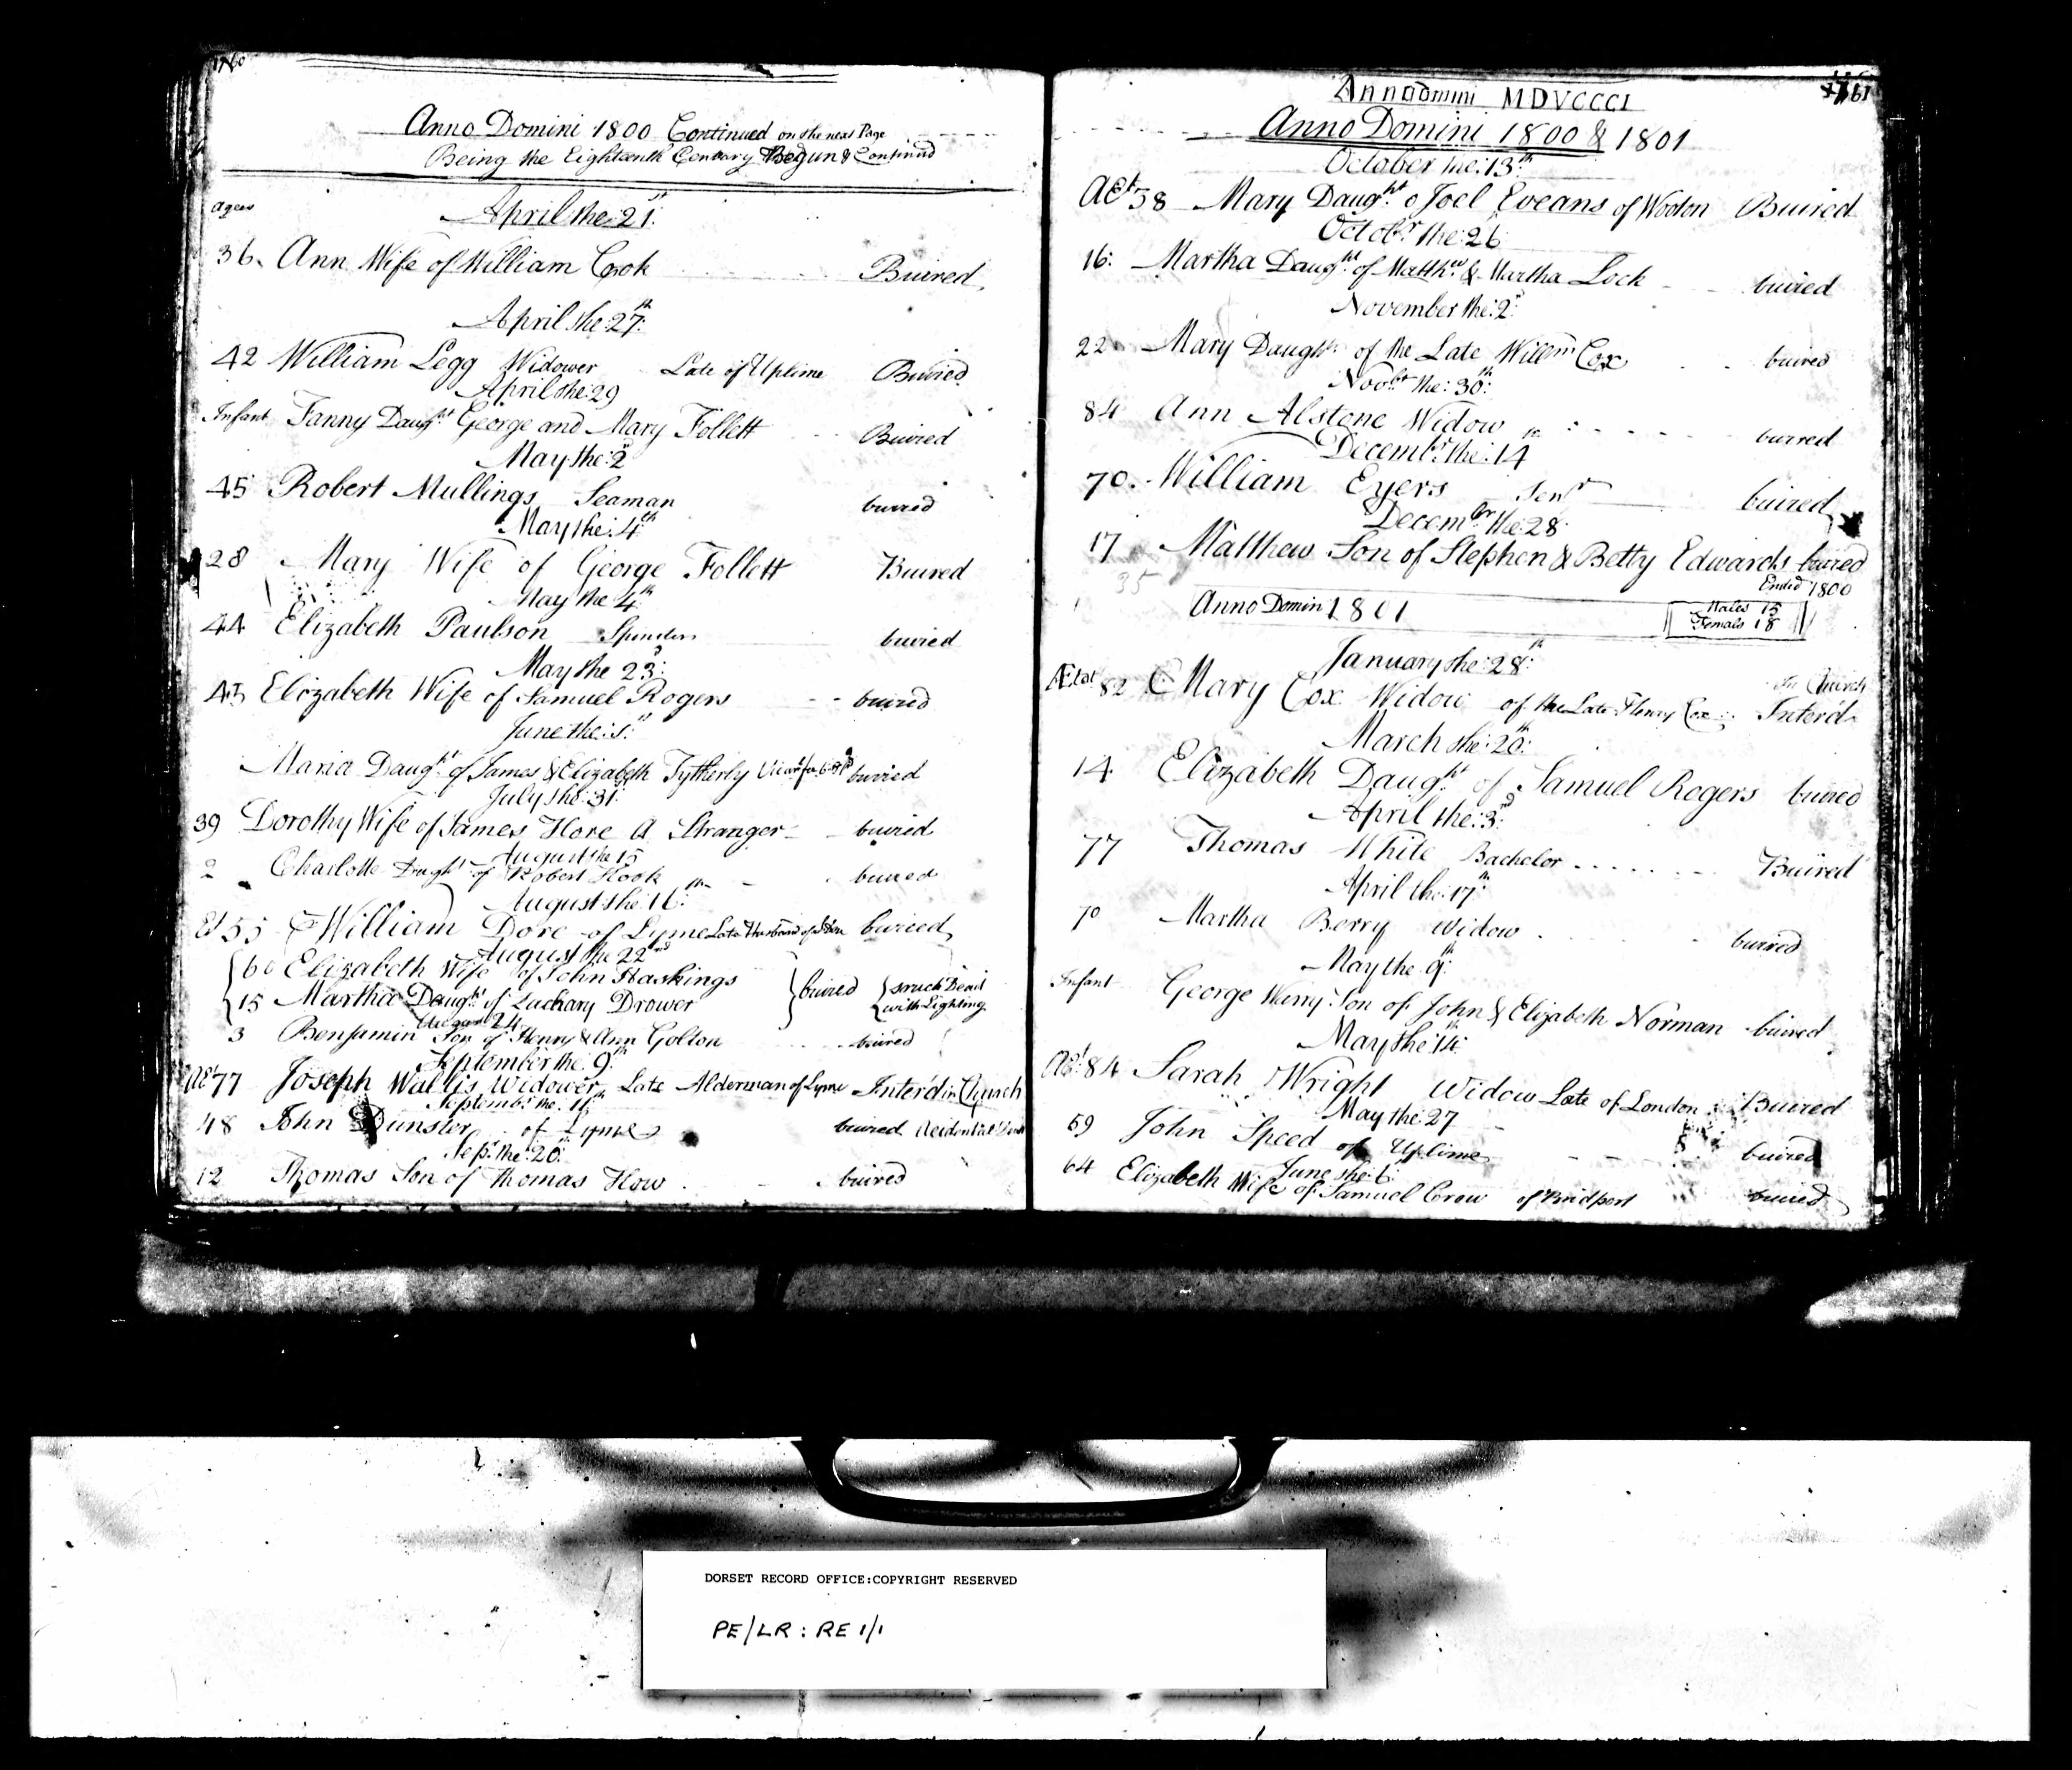 1760
Anno Domini 1800 Continued on the next Page
Being the Eighteenth Century Begun & Continued
ages
April the: 21st
36. Ann Wife of William Cook Buired
April the: 27th
42 William Legg Widower Late of Uplime Buried
April the: 29
Infant Fanny Daught George and Mary Follett Buired
May the: 2d
45 Robert Mullings Seaman buired
May the: 4th
28 Mary Wife of George Follett Buired
May the 4th
44 Elizabeth Paulson Spinster buired
May the 23d:
45 Elizabeth Wife of Samuel Rogers buired
June the: 1st
Maria Daught of James & Elizabeth Tytherly buried
July the: 31st
39 Dorothy Wife of James Hore A Stranger buired
August the 15
2 Charlotte Daught of Robert Hook buired
August the: 16th
Et 55 William Dore of Lyme Late Husband of buired
August the 22nd
60 Elizabeth Wife of John Haskings
15 Martha Daught of Zachary Drower buired struck Dead with Lighting
August 24
3 Benjamin Son of Henry & Ann Golton buired
September the: 9th
Aet 77 Joseph Wallis Widower Late Alderman of Lyme Interd in Church
Septembr the. 11th
48 John Dunster of Lyme buired Acidental Death
Sepr. the: 20th:
12 Thomas Son of Thomas How buired
Annodmini MDVCCCI
1761
Anno Domini 1800 & 1801
October the: 13th
Aet 58 Mary Daught o Joel Eveans of Wooton Buired
Octobr the: 26
16: Martha Daught of Matthw & Martha Lock buired
November the: 2d
22 Mary Daught of the Late Willm Cox buired
Novbr the: 30th:
84 Ann Alstone Widow burred
Decembr the: 14th
70. William Eyers Senr buired
Decembr the: 28
17 Matthew Son of Stephen & Betty Edwards buired
35
Ended 1800
Anno Domin 1801
Males 15
Femals 18
January the: 28th:
Ætat 82 Mary Cox Widow of the Late Henry Cox Interd
in Church
March the: 20th:
14 Elizabeth Daught of Samuel Rogers buired
April the: 3d
77 Thomas White Bachelor Buired
April the: 17th
70 Martha Berry Widow buired
May the: 9th:
Infant George Warry: Son of John & Elizabeth Norman buired
May the: 14th:
Aet: 84 Sarah Wright Widow Late of London Buired
May the 27
59 John Speed of Uplime buired
June the: 6:
64 Elizabeth Wife of Samuel Crow of Bridport buired
DORSET RECORD OFFICE:COPYRIGHT RESERVED
PE/LR : RE 1/1